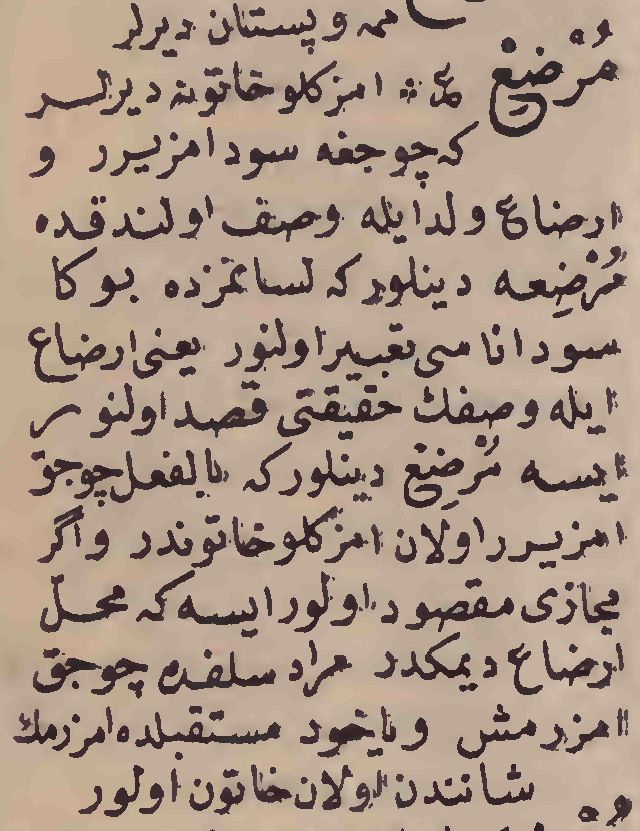 ممه و پستان ديرلر
مُرْضِعْ ع امزكلو خاتونه ديرلر
كه چوجغه سود امزيرر و
ارضاع ولد ايله وصف اولندقده
مُرْضِعه دينلور كه لسانمزده بوكا
سود اناسى تعبير اولنور يعنى ارضاع
ايله وصفك حقيقتى قصد اولنور
ايسه مُرْضِعْ دينلور كه بالفعل چوجق
امزيرر اولان امزكلو خاتوندر واگر
مجازى مقصود اولور ايسه كه محل
ارضاع ديمكدر مراد سلفده چوجق
امزرمش وياخود مستقبلده امزرمك
شانندن اولان خاتون اولور